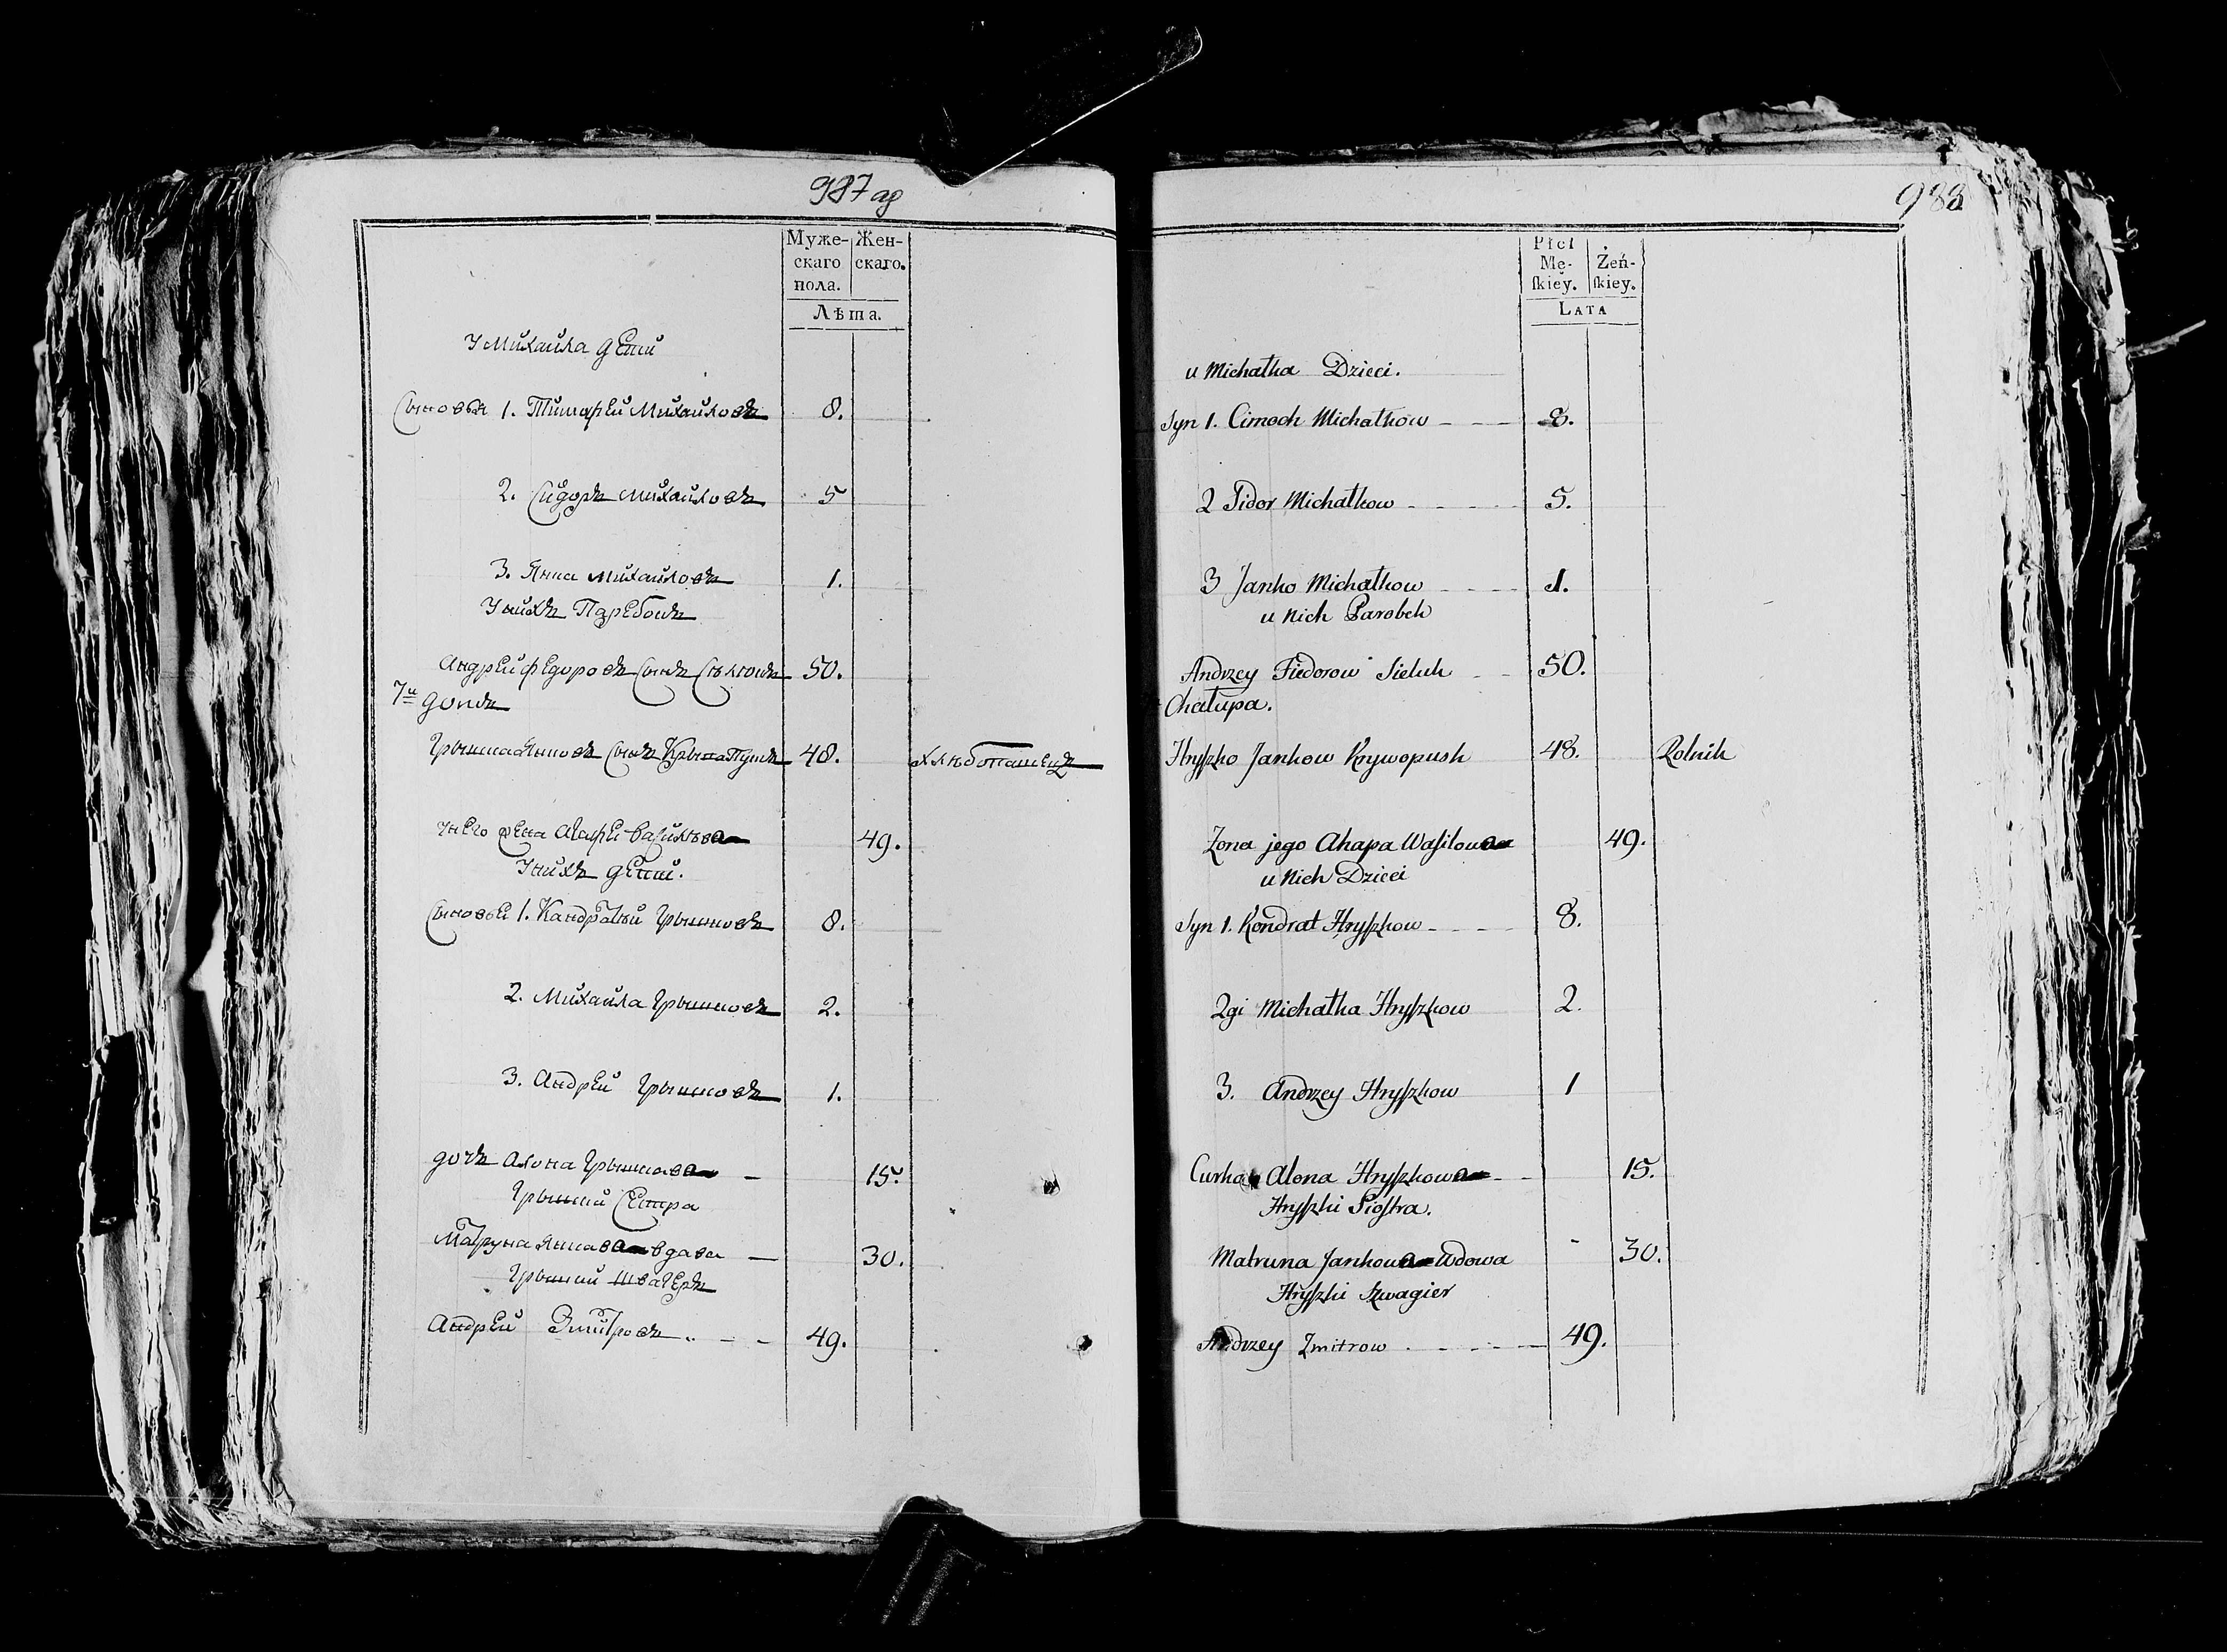 987 аδ
Муже- Жен-
скаго скаго.
пола.
Лѣта.
У Михаила дети
Сыновья 1. Тимафей Михайловъ 8.
2. Сидоръ Михайловъ 5
3. Янка Михайловъ 1.
У нихъ Паребокъ
Андрей Федоровъ Сынъ Селюкъ 50.
7й домъ
Грышка Янковъ Сынъ Крывапускъ 48. хлѣбопашецъ
у него жена Агафея Василева 49.
У нихъ дети.
Сыновья 1. Кандратей Грышковъ 8.
2. Михаила Грышковъ 2.
3. Андрей Грышковъ 1.
дочь Алона Грышкава 15.
Грышки Сестра
Матруна Янкава вдава 30.
Грышки швагеръ
Андрей Змитровъ 49.
988
Płci
Mę- Żeń-
ſkiey. ſkiey.
LATA
u Michałka Dzieci.
Syn 1. Cimoch Michałkow - - - 8.
2 Sidor Michałkow - - - - 5.
3 Janko Michałkow - - - 1.
u Nich Parobek
Andrzey Fiedorow Sieluk - - 50.
Chałupa.
Hryſzko Jankow Krywopusk 48. Rolnik
Żona jego Ahapa Waſilowa 49.
u Nich Dzieci
Syn 1. Kondrat Hryſzkow - - - - 8.
2gi Michałka Hryſzkow 2.
3. Andrzey Hryſzkow 1
Curka Alona Hryſzkowa - - 15.
Hryſzki Sioſtra.
Matruna Jankowa Wdowa - 30.
Hryſzki Szwagier
Andrzey Zmitrow . - - - - - 49.